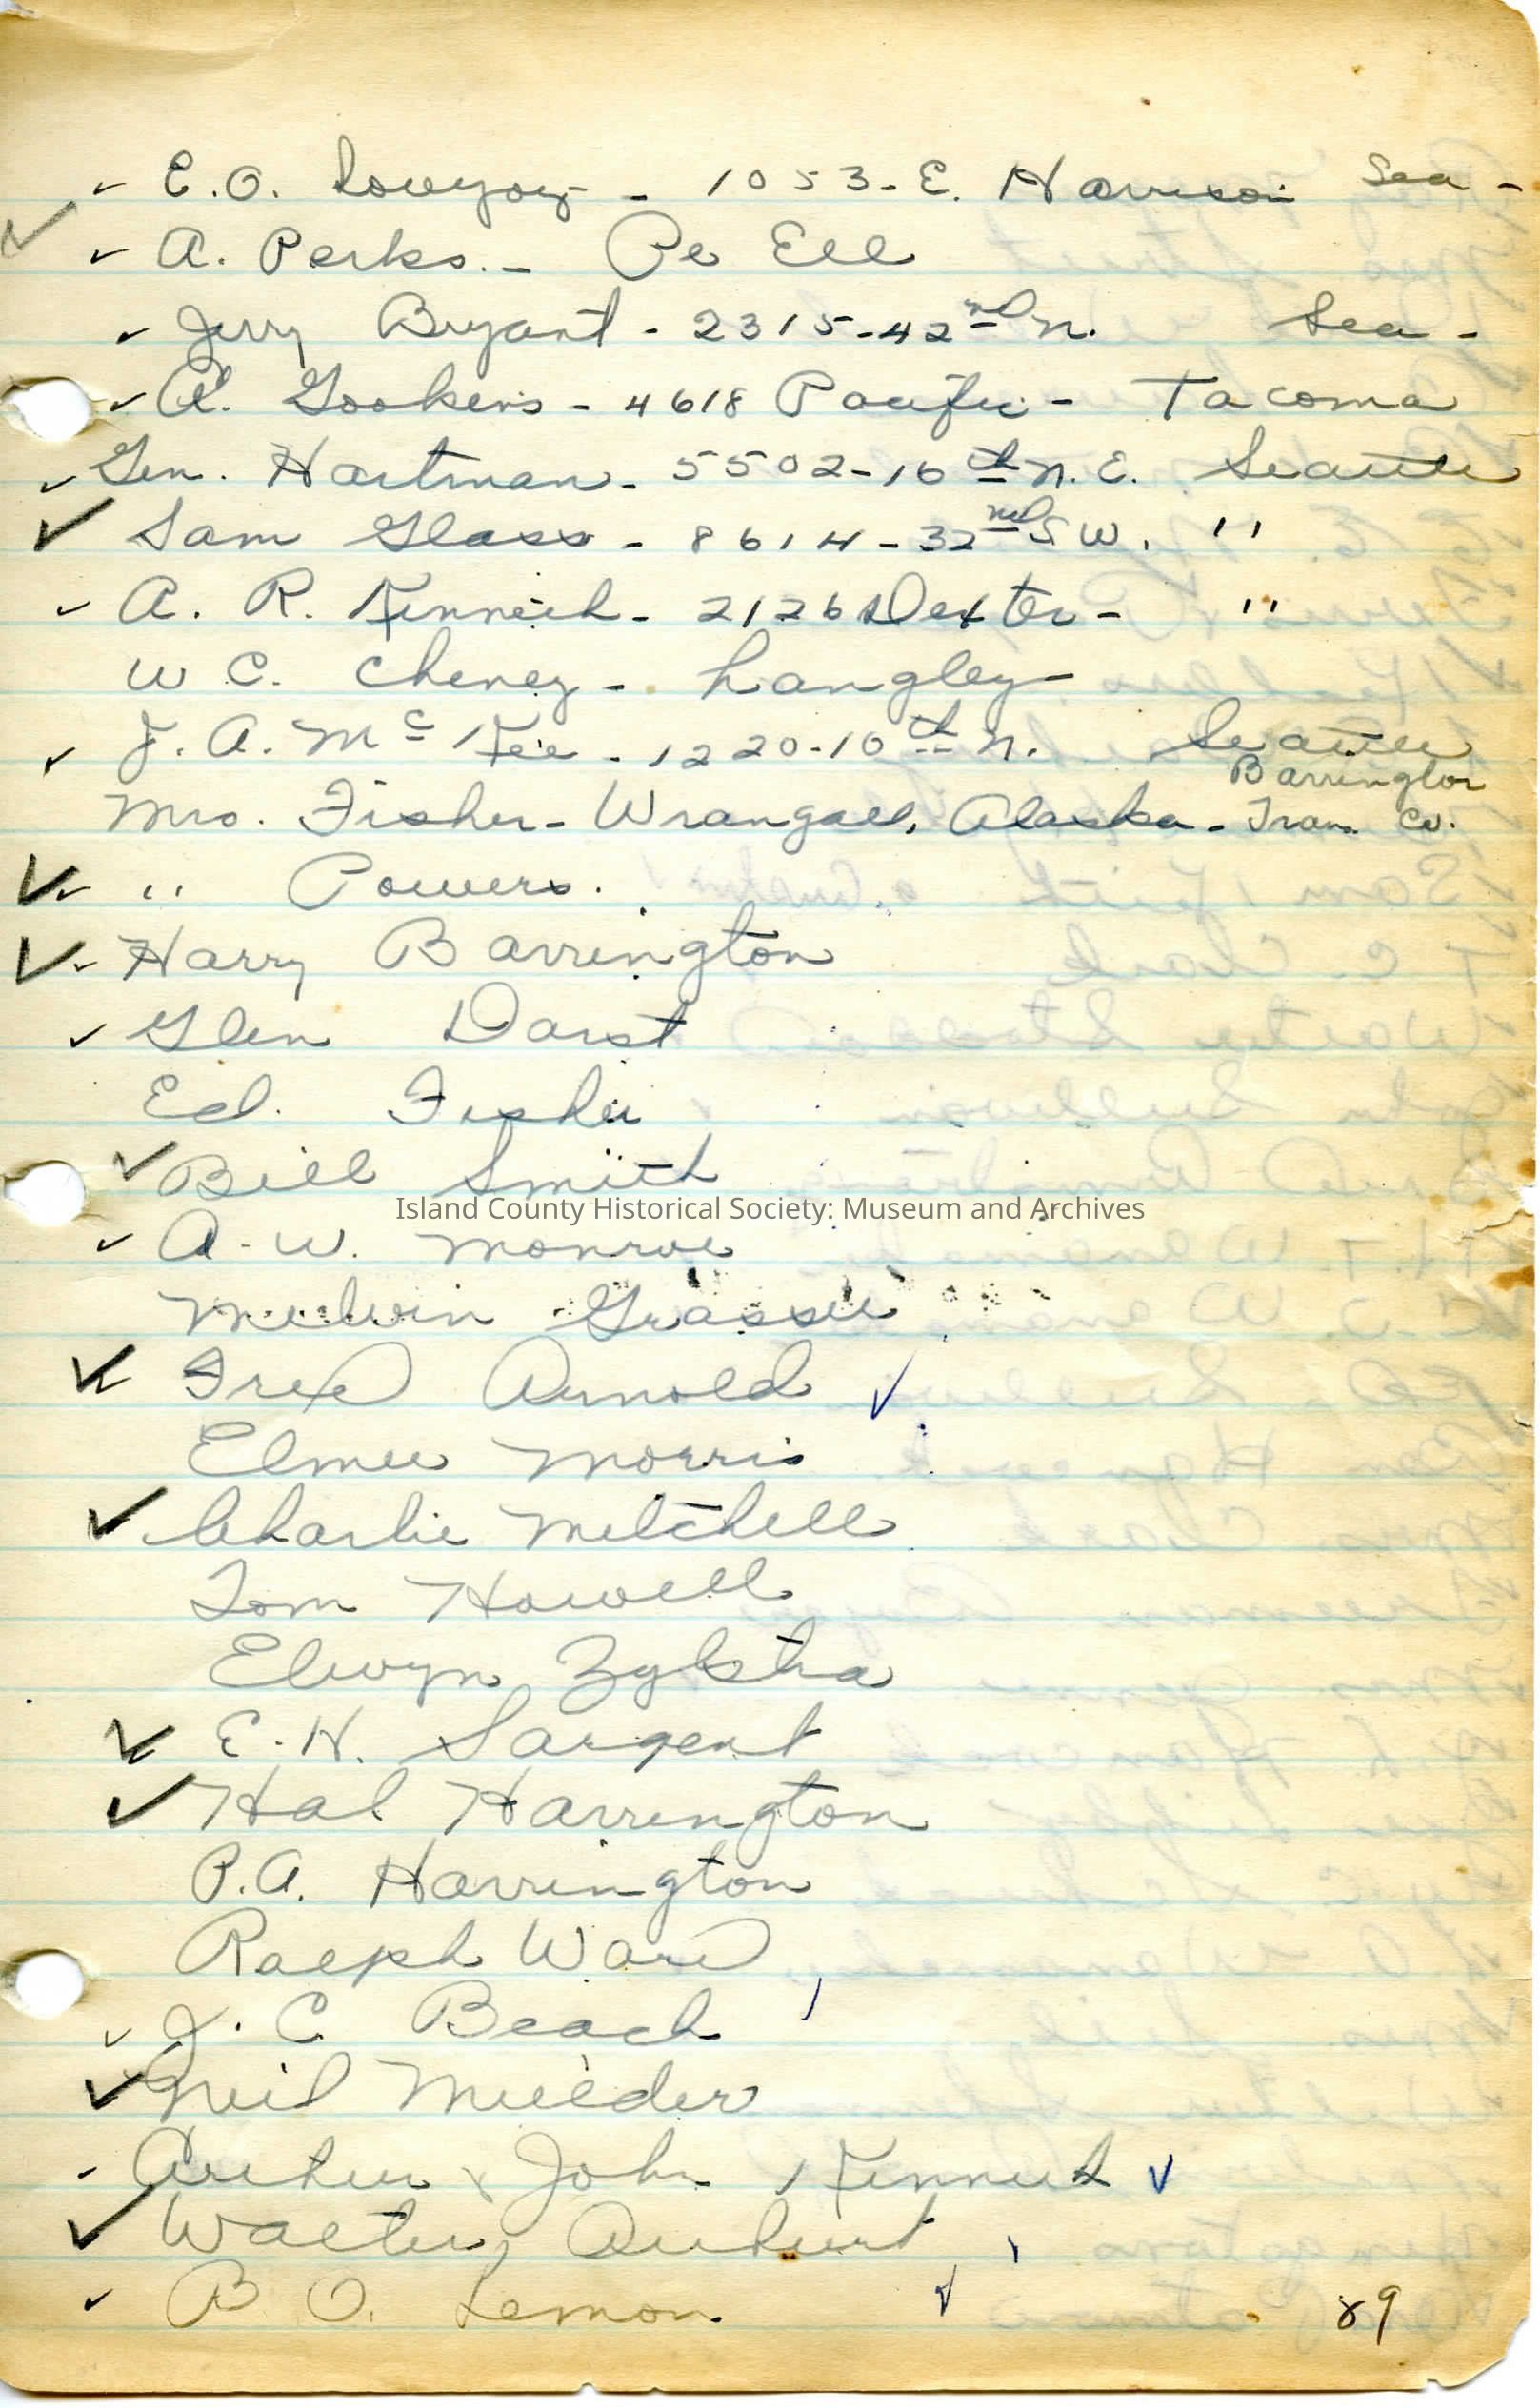 ✓ E.O. Lovejoy - 1053 - E. Harrison Sea -
✓ ✓ A. Perks. - Pe Ell
✓ Jerry Bryant - 2315 - 42nd N. Sea -
✓ A. Gookins - 4618 Pacific - Tacoma
✓ Gen. Hartman - 5502 - 16th N.E. Seattle
✓ Sam Glass - 8614 - 32nd S W. "
✓ A. R. Kenneth - 2126 Dexter - "
W C. Cheney - Langley
✓ J. A. Mc Kee - 1220 - 10th N. Seattle
Barrington
Mrs. Fisher - Wrangell, Alaska - Tran. Co.
✓ ✓ " Powers.
✓ ✓ Harry Barrington
✓ Glen Darst
Ed. Fisher
✓ Bill Smith
Island County Historical Society: Museum and Archives
✓ A. W. Monroe
Melvin Grasser
✓ Fred Arnold ✓
Elmer Morris
✓ Charlie Mitchell
Tom Howell
Elwyn Zylstra
✓ E. H. Sargent
✓ Hal Harrington
P.A. Harrington
Ralph Ward
✓ J. C Beach
✓ Neil Mulder
✓ Arthur & John Kenneth ✓
✓ Walter
✓ B O. Lemon ✓
89